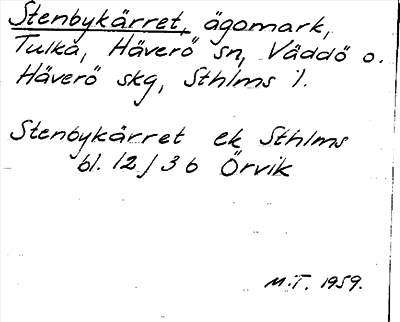 Stenbykärret, ägomark,
Tulka, Häverö sn, Väddö o.
Häverö skg, Sthlms l.
Stenbykärret ek Sthlms
bl. 12 J 3 b Örvik
M.T. 1959.